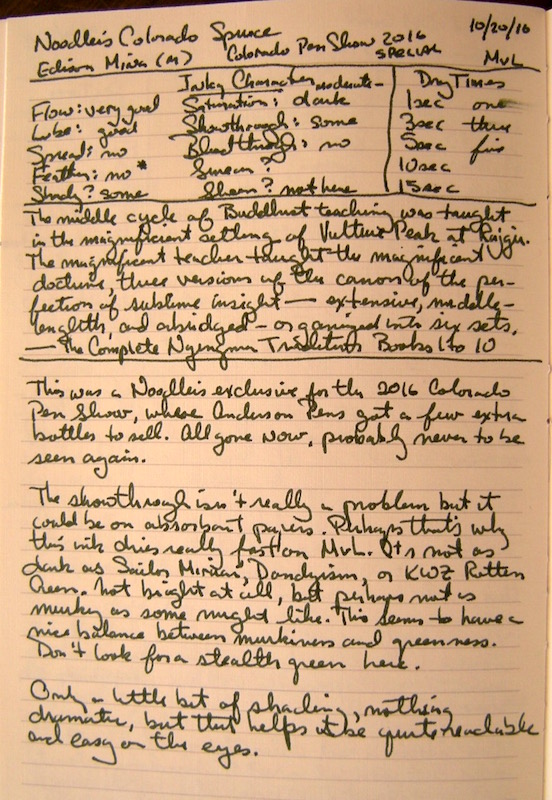 Noodler's Colorado Spruce 10/20/16
Edison Mina (M) Colorado Pen Show 2016 SPECIAL MvL
Inky Character Dry Times
Flow: very good Saturation: moderate - dark 1sec one
Lube: good Showthrough: some 3sec three
Spread: no Bleedthrough: no 5sec five
Feather: no* Smear? 10sec
Shady? some Sheen? not here 15sec
The middle cycle of Buddhist teaching was taught
in the magnificent setting of Vulture Peak at Rajgir.
The magnificent teacher taught the magnificent
doctrine, three versions of the canon of the per-
fection of sublime insight — extensive, middle-
length, and abridged - organized into six sets.
— The Complete Nyingma Tradition Books 1 to 10
This was a Noodler's exclusive for the 2016 Colorado
Pen Show, where Anderson Pens got a few extra
bottles to sell. All gone now, probably never to be
seen again.
The showthrough isn't really a problem but it
could be on absorbant papers. Perhaps that's why
this ink dries really fast on MvL. It's not as
dark as Sailor Miruai, Dandyism, or KWZ Rotten
Green. Not bright at all, but perhaps not as
murky as some might like. This seems to have a
nice balance between murkiness and greenness.
Don't look for a stealth green here.
Only a little bit of shading, nothing
dramatic, but that helps it be quite readable
and easy on the eyes.